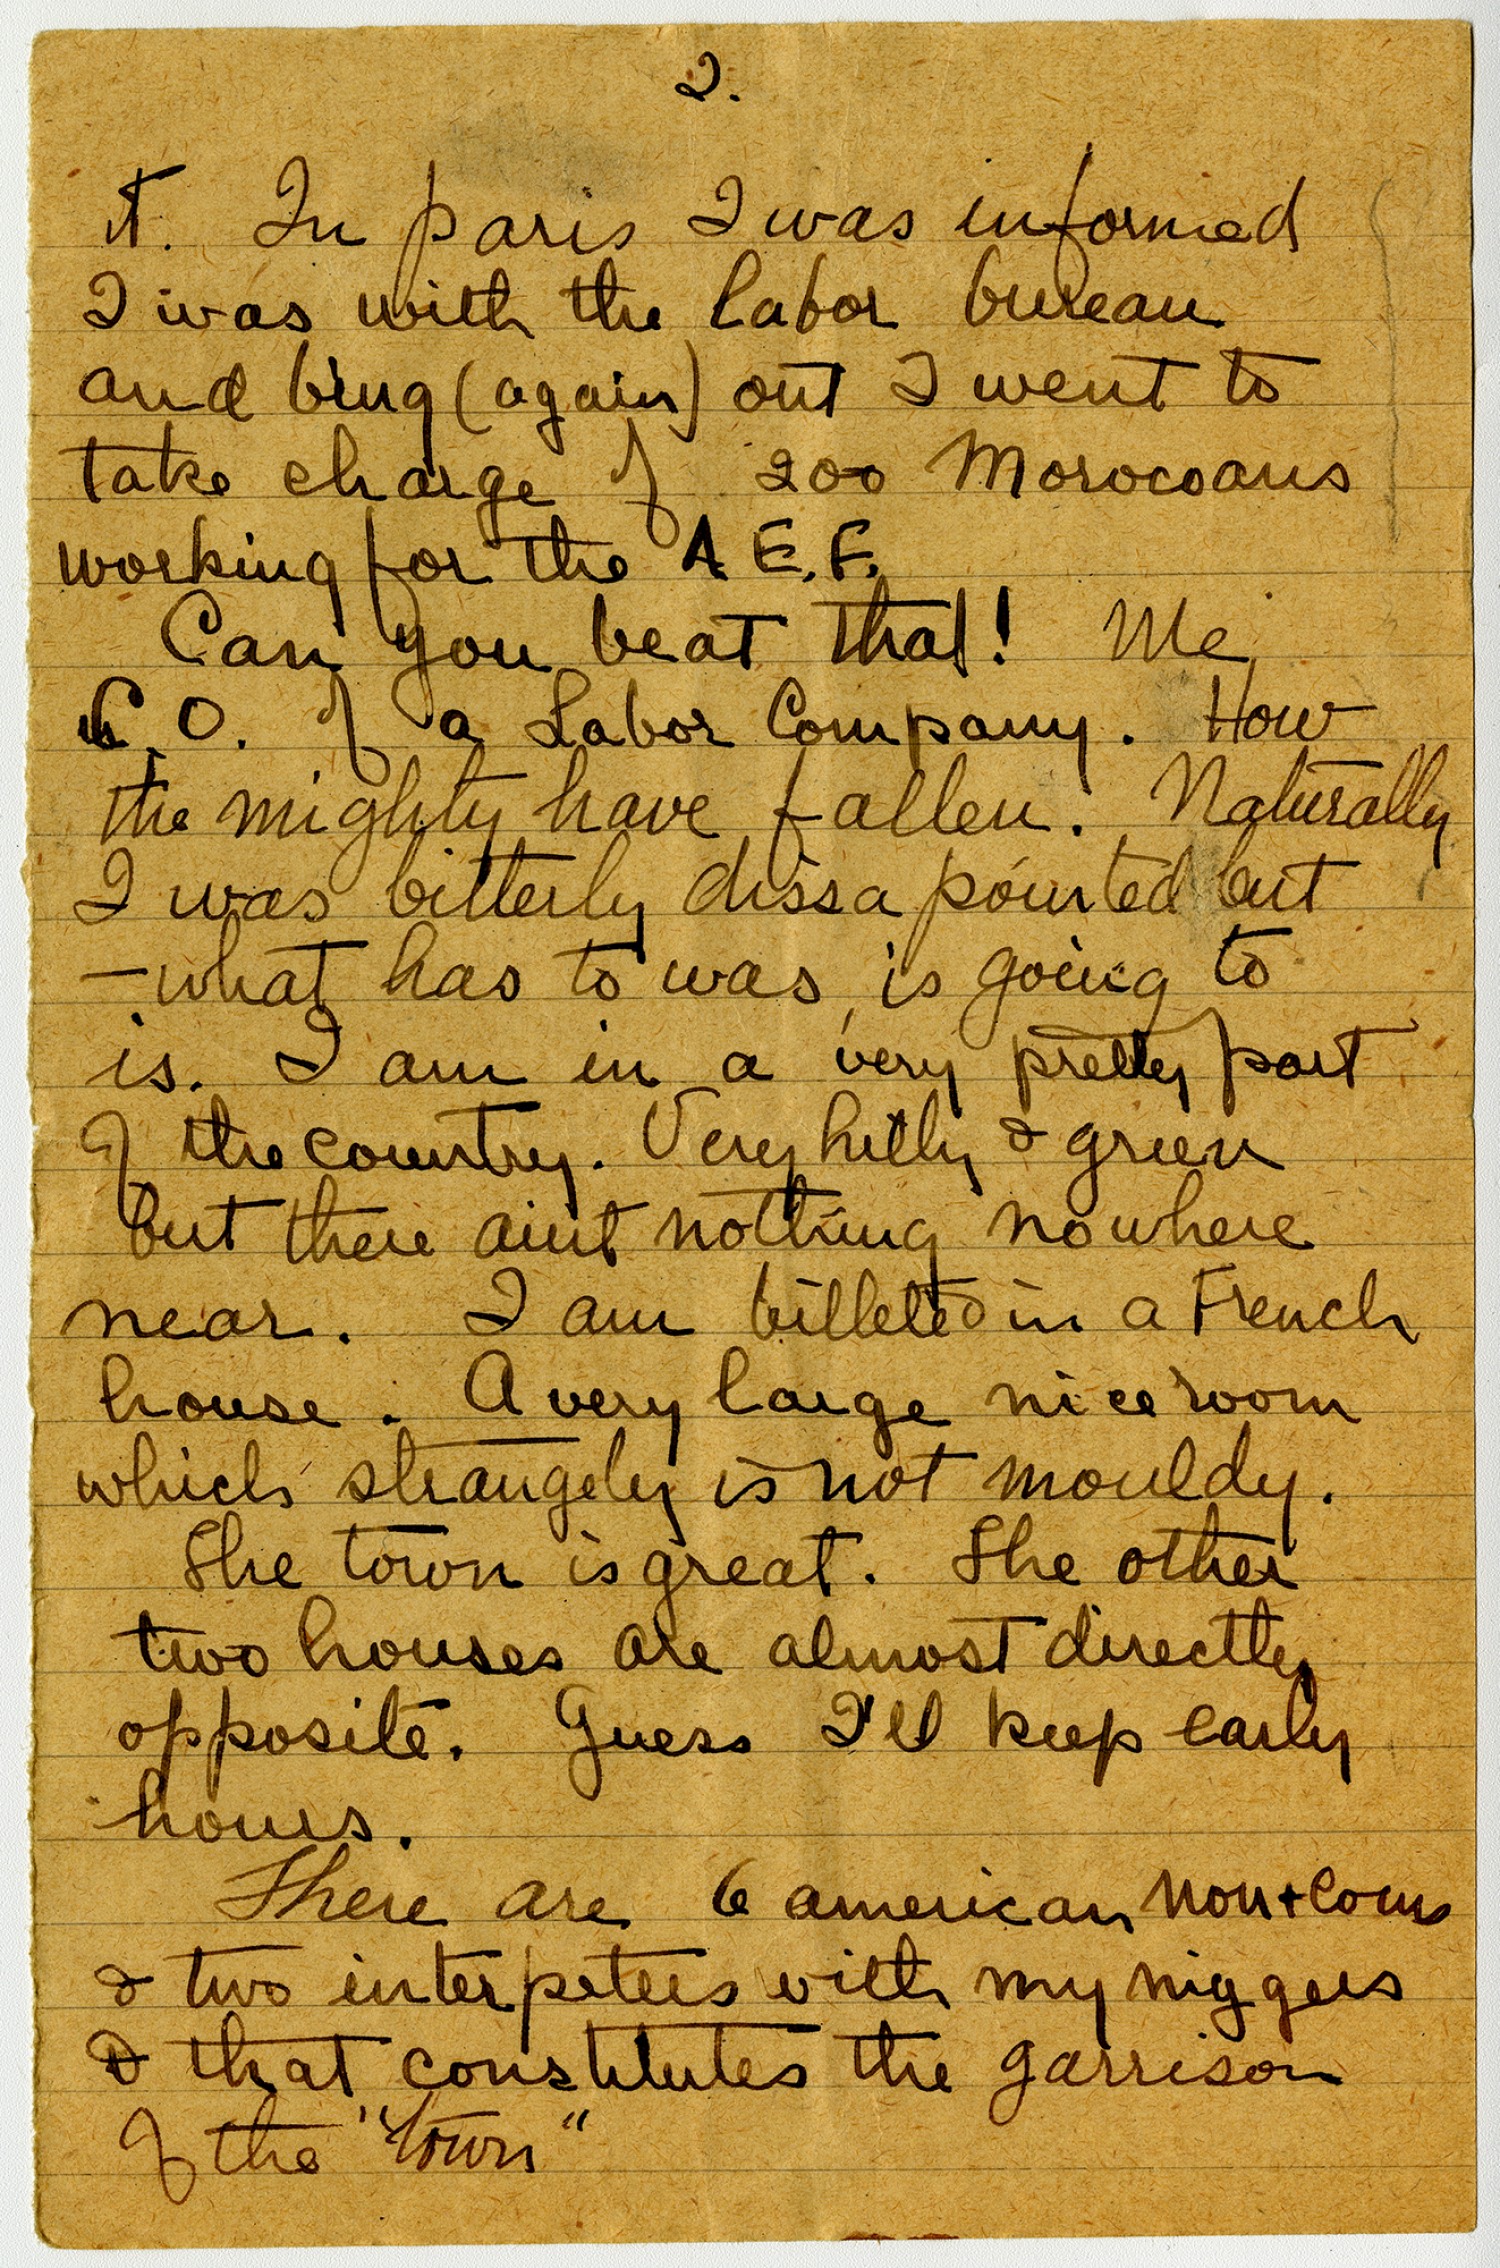 2.
it. In paris I was informed
I was with the labor bureau
and bing (again) out I went to
take charge of 200 Morocoans
working for the A.E.F.
Can you beat that! Me
C.O. of a Labor Company. How
the mighty have fallen. Naturally
I was bitterly dissapointed but
- what has to was, is going to
is. I am in a very pretty part
of the country. Very hilly & green
but there aint nothing nowhere
near. I am billeted in a French
house. A very large nice room
which strangely is not mouldy.
The town is great. The other
two houses are almost directly
opposite. Guess I'll keep early
hours.
There are 6 american Non+Coms
& two interpeters with my niggers
& that constitutes the garrison
of the "town"